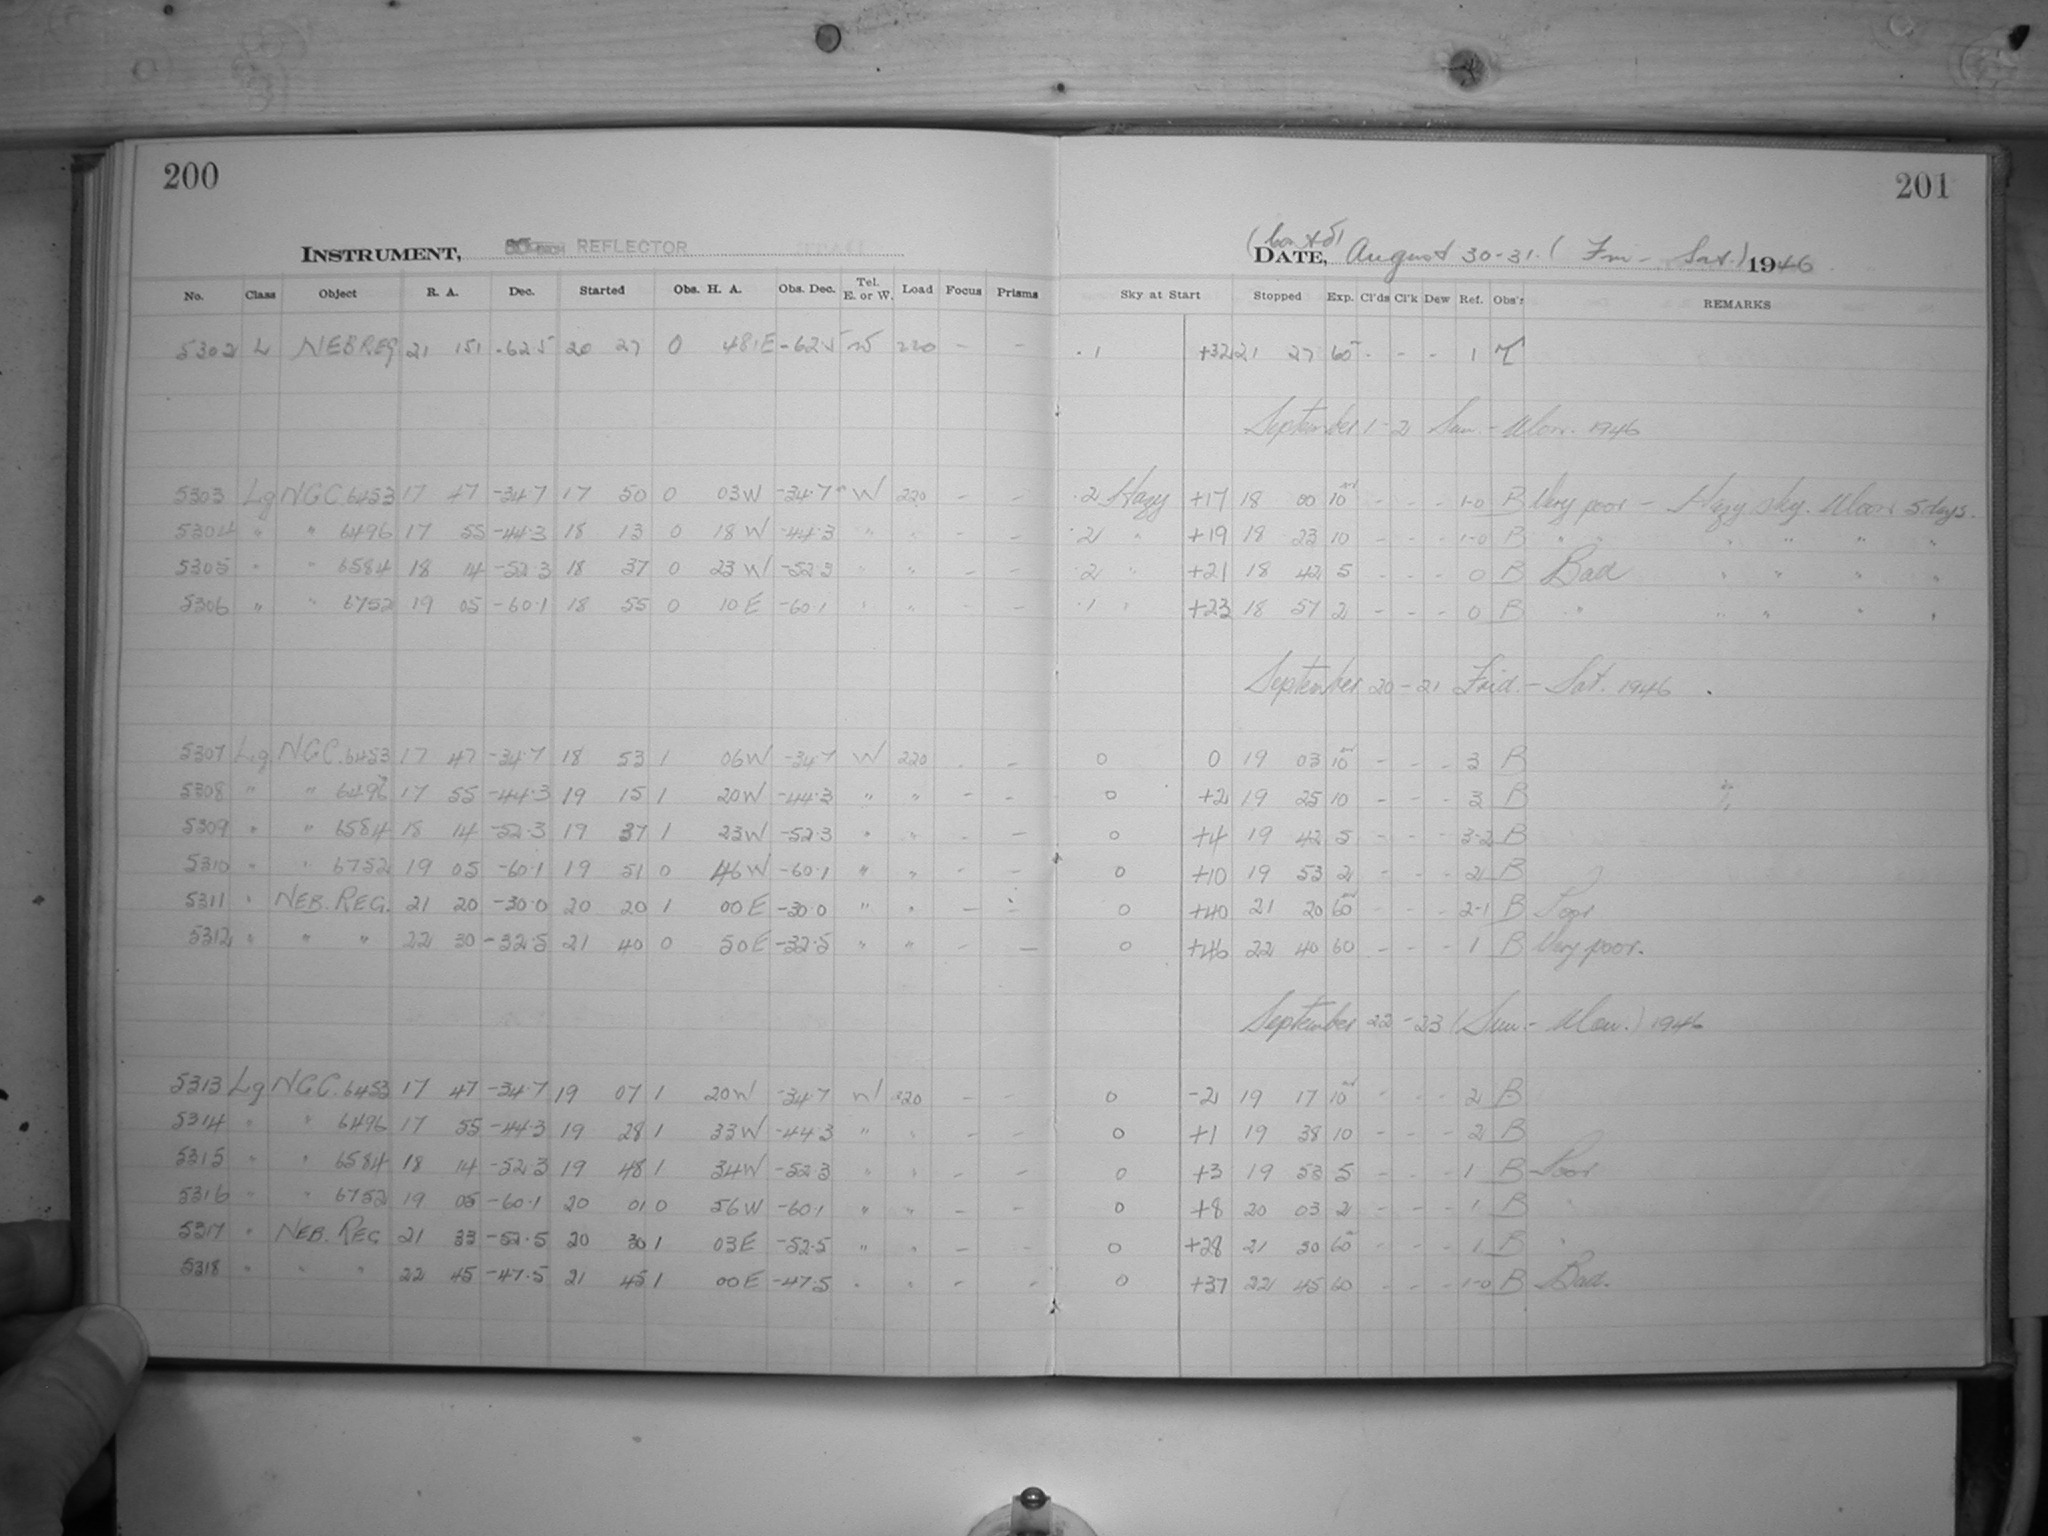 200
201
INSTRUMENT, REFLECTOR
DATE, August 30-31 (Fri - Sat.) 1946
No. Class Object R. A. Dec. Started Obs. H. A. Obs. Dec. Tel. E. or W. Load Focus Prisms Sky at Start Stopped Exp. Cl'ds Cl'k Dew Ref. Obs'r REMARKS
5302 L NEB REG 21 151 -62.5 20 27 0 481E -62.5 W 220 - - .1 +32 21 27 60 - - - 1
September 1-2 Sun.-Mon. 1946
5303 Lg NGC.6453 17 47 -34.7 17 50 0 03W -34.7 W 220 - - .2 Hazy +17 18 00 10 - - - 1-0 B Very poor - Hazy sky. Moon 5 days.
5304 " " 6496 17 55 -44.3 18 13 0 18W -44.3 " " - - .2 " +19 18 23 10 - - - 1-0 B " " " " " "
5305 " " 6584 18 14 -52.3 18 37 0 23W -52.3 " " - - .2 " +21 18 42 5 - - - 0 B Bad " " " "
5306 " " 6752 19 05 -60.1 18 55 0 10E -60.1 " " - - .1 " +23 18 57 2 - - - 0 B " " " " "
September 20-21 Frid.-Sat. 1946
5307 Lg NGC.6453 17 47 -34.7 18 53 1 06W -34.7 W 220 - - 0 0 19 03 10 - - - 3 B
5308 " " 6496 17 55 -44.3 19 15 1 20W -44.3 " " - - 0 +2 19 25 10 - - - 3 B
5309 " " 6584 18 14 -52.3 19 37 1 23W -52.3 " " - - 0 +4 19 42 5 - - - 3-2 B
5310 " " 6752 19 05 -60.1 19 51 0 46W -60.1 " " - - 0 +10 19 53 2 - - - 2 B
5311 " NEB. REG. 21 20 -30.0 20 20 1 00E -30.0 " " - - 0 +40 21 20 60 - - - 2-1 B Poor
5312 " " " 22 30 -32.5 21 40 0 50E -32.5 " " - - 0 +46 22 40 60 - - - 1 B Very poor.
September 22-23 (Sun.-Mon.) 1946
5313 Lg NGC.6453 17 47 -34.7 19 07 1 20W -34.7 W 220 - - 0 -2 19 17 10 - - - 2 B
5314 " " 6496 17 55 -44.3 19 28 1 33W -44.3 " " - - 0 +1 19 38 10 - - - 2 B
5315 " " 6584 18 14 -52.3 19 48 1 34W -52.3 " " - - 0 +3 19 53 5 - - - 1 B Poor
5316 " " 6752 19 05 -60.1 20 01 0 56W -60.1 " " - - 0 +8 20 03 2 - - - 1 B "
5317 " NEB. REG 21 33 -52.5 20 30 1 03E -52.5 " " - - 0 +28 21 30 60 - - - 1 B "
5318 " " " 22 45 -47.5 21 45 1 00E -47.5 " " - - 0 +37 22 45 60 - - - 1-0 B Bad.